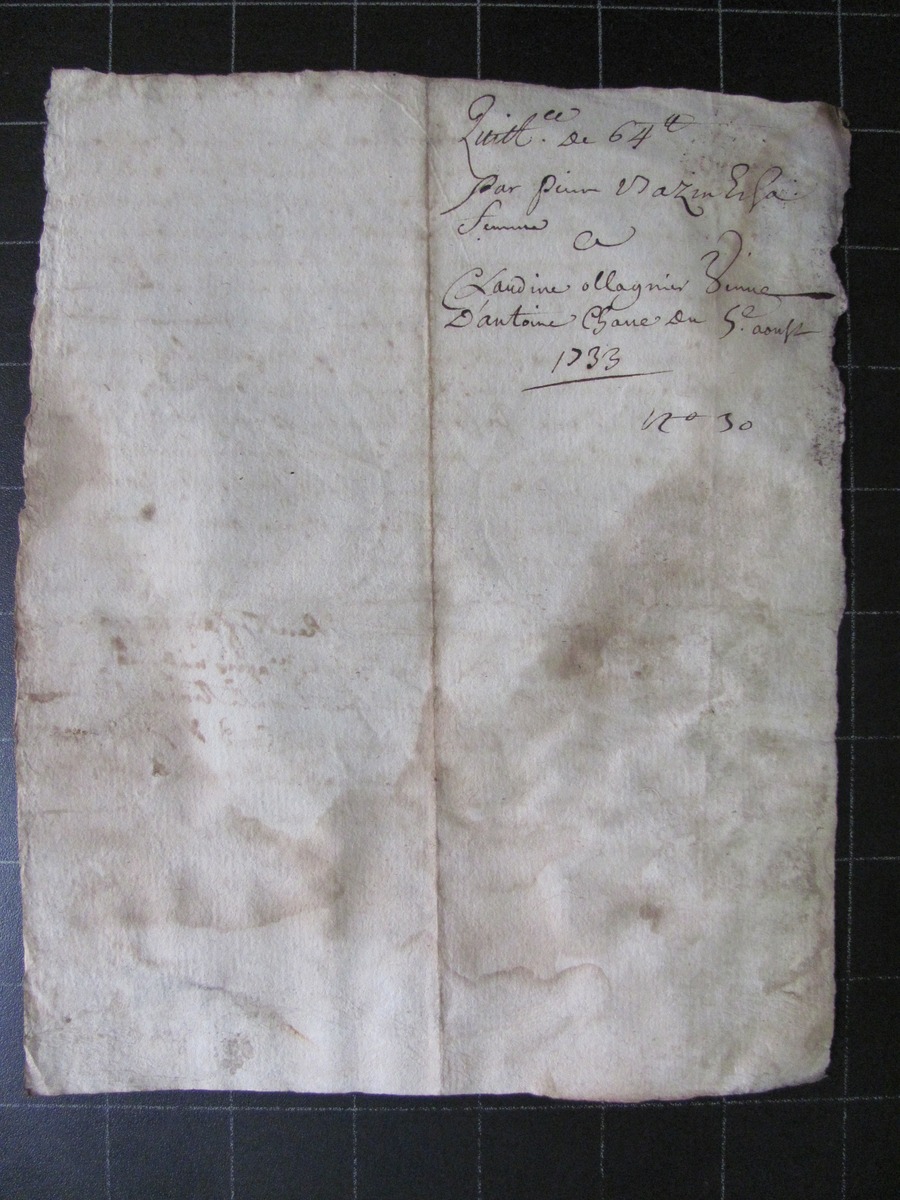 Quitt.ce de 64 tt
par pierre Vazin Et sa
femme
a
Claudine ollagnier Veuve
D'antoine Chave du 5.e aoust
1733
N.o 30